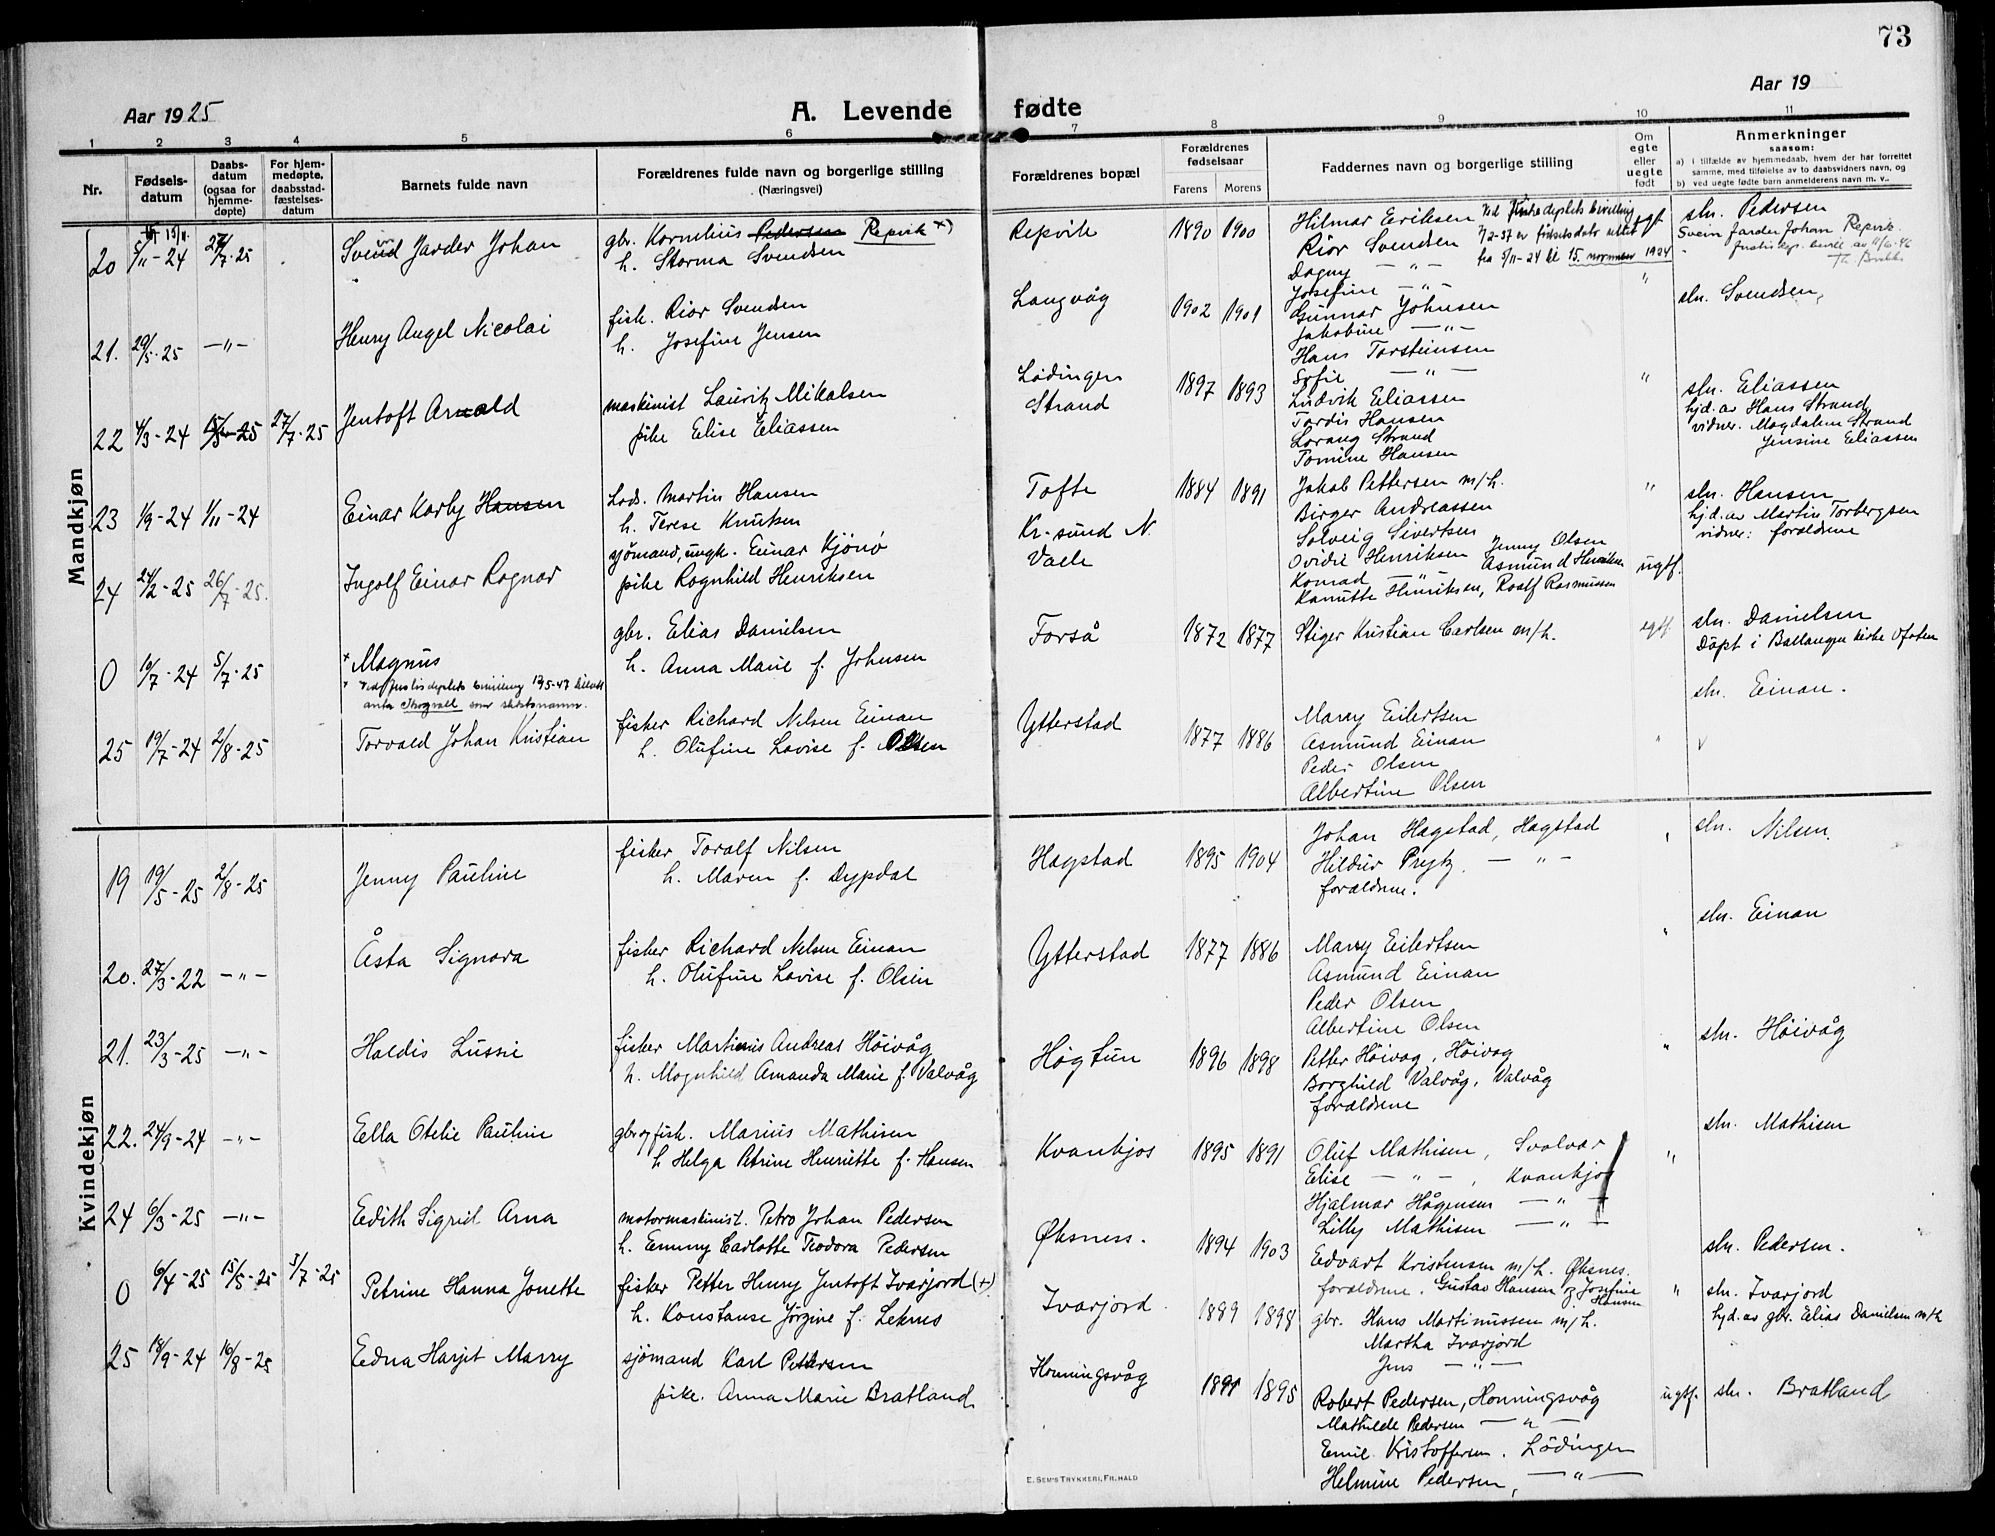 73
Aar 1925
A. Levende fødte
Aar 19
1 2 3 4 5 6 7 8 9 10 11
Nr.
Fødsels-
datum
Daabs-
datum
(ogsaa for
hjemme-
døpte)
For hjem-
medøpte,
daabsstad-
fæstelses-
datum
Barnets fulde navn
Forældrenes fulde navn og borgerlige stilling
(Næringsvei)
Forældrenes bopæl
Forældrenes
fødselsaar
Farens Morens
Faddernes navn og borgerlige stilling
Om
egte
eller
uegte
født
Anmerkninger
saasom:
a) i tilfælde av hjemmedaab, hvem der har forrettet
samme, med tilføielse av to daabsvidners navn, og
b) ved uegte fødte barn anmelderens navn m. v..
Mandkjøn
20 5/11-24 27/7-25 Svend Jarder Johan
gbr. Kornelius Pedersen Repvik x)
h. Storma Svendsen
Repvik 1890 1900
Hilmar Eriksen
Riar Svendsen
Dagny -"-
Josefine -"-
7/2-37 er fødselsdato rettet
fra 5/11-24 til 15. november 1924
egf.
sln. Pedersen
Svein Jarder Johan Repvik
21. 29/5-25 -"- Henry Angel Nicolai
fisk. Riar Svendsen
h. Josefine Jensen
Langvåg 1902 1901
Gunnar Johnsen
Jakobine -"-
Hans Torsteinsen
Sofie -"-
"
sln. Svendsen
22 4/3-24 15/3-25 27/7-25 Jentoft Arnold
maskinist Lauritz Mikalsen
pike Elise Eliassen
Lødingen
Strand
1897 1893
Ludvik Eliassen
Tordis Hansen
Lorang Strand
Tomine Hansen
"
sln. Eliassen
hjd. av Hans Strand
vidner. Magdalena Strand
Jensine Eliassen
23 1/9-24 1/11-24 Einar Karby Hansen
Lods. Martin Hansen
h. Terese Knutsen
Tofte 1884 1891
Jakob Pettersen m/h.
Birger Andreassen
Solveig Sivertsen
"
sln. Hansen
hj.d. av Martin Torbergsen
vidner: forældrene
24 24/2-25 26/7-25. Ingolf Einar Ragnar
sjømand, ungk. Einar Kjönö
pike Ragnhild Henriksen
Kr-sund N.
Vaele
Ovidie Henriksen Jenny Olsen
Konrad -"- Asmund Henriksen
Kanutte Henriksen, Roalf Rasmussen
ugtf.
0 19/7-24 5/7-25 x Magnus
gbr. Elias Danielsen
h. Anna Marie f. Johnsen
Forså 1872 1877
Stiger Kristian Carlsen m/h.
egtf.
sln. Danielsen
Döpt i Ballangen kirke Ofoten
25 19/7-24 2/8-25 Torvald Johan Kristian
fisker Richard Nilsen Einan
h. Olufine Lovise f. Olsen
Ytterstad 1877 1886
Marry Eilertsen
Asmund Einan
Peder Olsen
Albertine Olsen
"
sln. Einan.
Kvindekjøn
19 19/5-25 2/8-25 Jenny Pauline
fisker Toralf Nilsen
h. Maren f. Dypdal
Hagstad 1895 1904
Johan Hagstad, Hagstad
Hildur Prytz. -"-
forældrene.
"
sln. Nilsen.
20. 27/3-22 -"- Åsta Signora
fisker Richard Nilsen Einan
h. Olufine Lovise f. Olsen
Ytterstad 1877 1886
Marry Eilertsen
Asmund Einan
Peder Olsen
Albertine Olsen
"
sln. Einan
21. 23/3-25 -"- Haldis Lussie
fisker Martinus Andreas Höivåg
h. Magnhild Amanda Marie f. Valvåg
Högtun 1896 1898
Petter Höivag, Höivag
Borghild Valvåg, Valvåg
forældrene
"
sln. Höivåg
22. 24/9-24 -"- Ella Otelie Pauline
gbr og fisk. Marius Mathisen
h Helga Petrine Henriette f. Hansen
Kvankjos 1895 1891
Oluf Mathisen, Svolvær
Elise -"-, Kvankjos
Hjalmar Hågensen -"-
Lilly Mathisen -"-
"
sln. Mathisen
24 6/3-25 -"- Edith Sigrid Arna
motormaskinist. Petro Johan Pedersen
h. Emmy Carlotte Teodora Pedersen
Øksness. 1894 1903
Edvart Kristensen m/h. Øksnes.
forældrene. Gustav Hansen og Josefine
Hansen
"
sln. Pedersen.
0 6/4-25 15/5-25 5/7-25 Petrine Hanna Jonette
fisker Petter Henry Jentoft Ivarjord (+)
h. Konstanse Jörgine f. Leknes
Ivarjord 1889 1898
gbr. Hans Martinussen m/h.
Martha Ivarjord
Jens -"-
sln. Ivarjord
hjd. av gbr. Elias Danielsen m/h
25 18/9-24 16/8-25 Edna Harjet Marry
sjömand Karl Pettersen
pike. Anna Marie Bratland
Honningsvåg 1891 1895
Robert Pedersen, Honningsvåg
Mathilde Pedersen -"-
Emil Kristoffersen. Lödingen
Helmine Pedersen, -"-
ugtf.
sln. Bratland
E. SEM'S TRYKKERI, FR.HALD